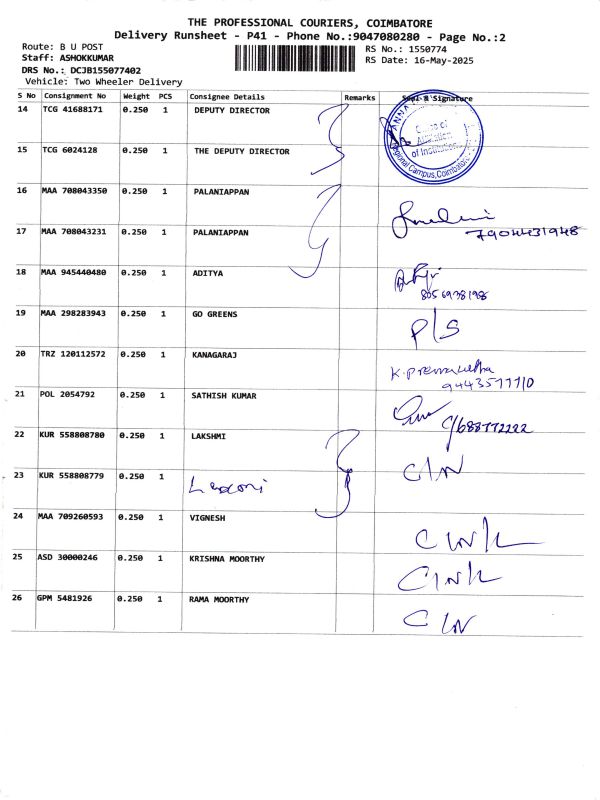 THE PROFESSIONAL COURIERS, COIMBATORE
Delivery Runsheet - P41 - Phone No.:9047080280 - Page No.:2
Route: B U POST
RS No.: 1550774
Staff: ASHOKKUMAR
RS Date: 16-May-2025
DRS No.: DCJB155077402
Vehicle: Two Wheeler Delivery
S No Consignment No Weight PCS Consignee Details Remarks Seal & Signature
14 TCG 41688171 0.250 1 DEPUTY DIRECTOR
of Institution
Regional Campus, Coimbatore
15 TCG 6024128 0.250 1 THE DEPUTY DIRECTOR
16 MAA 708043350 0.250 1 PALANIAPPAN
17 MAA 708043231 0.250 1 PALANIAPPAN
7904431948
18 MAA 945440480 0.250 1 ADITYA
8056938198
19 MAA 298283943 0.250 1 GO GREENS P/S
20 TRZ 120112572 0.250 1 KANAGARAJ
21 POL 2054792 0.250 1 SATHISH KUMAR
22 KUR 558808780 0.250 1 LAKSHMI C/N
23 KUR 558808779 0.250 1
24 MAA 709260593 0.250 1 VIGNESH
25 ASD 30000246 0.250 1 KRISHNA MOORTHY
26 GPM 5481926 0.250 1 RAMA MOORTHY C/N